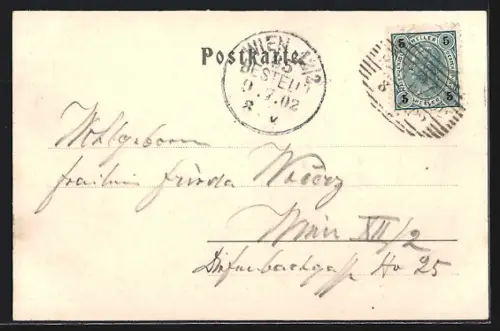 Postkarte
WIEN 12/2
BESTELLT
9.7.02
8. V
5 HELLER 5
5 HELLER 5
Wohlgeboren
fräulein Frieda
Wien XII/2
Diefenbachgasse No 25